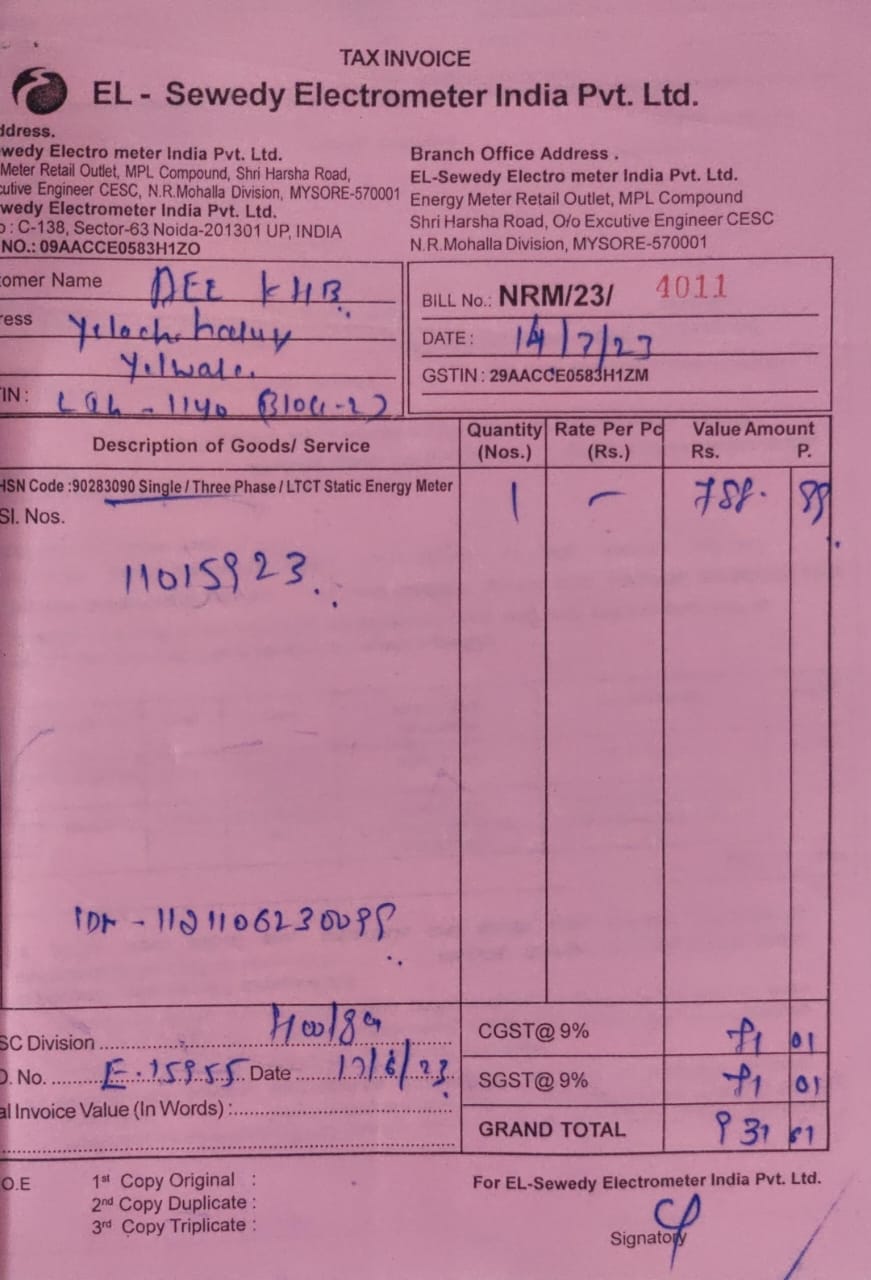 TAX INVOICE
EL - Sewedy Electrometer India Pvt. Ltd.
ddress.
wedy Electro meter India Pvt. Ltd.
Meter Retail Outlet, MPL Compound, Shri Harsha Road,
cutive Engineer CESC, N.R.Mohalla Division, MYSORE-570001
wedy Electrometer India Pvt. Ltd.
o : C-138, Sector-63 Noida-201301 UP, INDIA
NO.: 09AACCE0583H1ZO
Branch Office Address .
EL-Sewedy Electro meter India Pvt. Ltd.
Energy Meter Retail Outlet, MPL Compound
Shri Harsha Road, O/o Excutive Engineer CESC
N.R.Mohalla Division, MYSORE-570001
omer Name AEE KHB
ress
Yelwala.
IN :
BILL No.: NRM/23/ 4011
DATE : 14/7/23
GSTIN : 29AACCE0583H1ZM
Description of Goods/ Service
Quantity (Nos.)
Rate Per Pc (Rs.)
Value Amount
Rs. P.
HSN Code :90283090 Single / Three Phase / LTCT Static Energy Meter 1 –
Sl. Nos.
11015923
SC Division
O. No. E.15955 Date
al Invoice Value (In Words) :
CGST@ 9% 01
SGST@ 9% 01
GRAND TOTAL 931
O.E
1st Copy Original :
2nd Copy Duplicate :
3rd Copy Triplicate :
For EL-Sewedy Electrometer India Pvt. Ltd.
Signatory